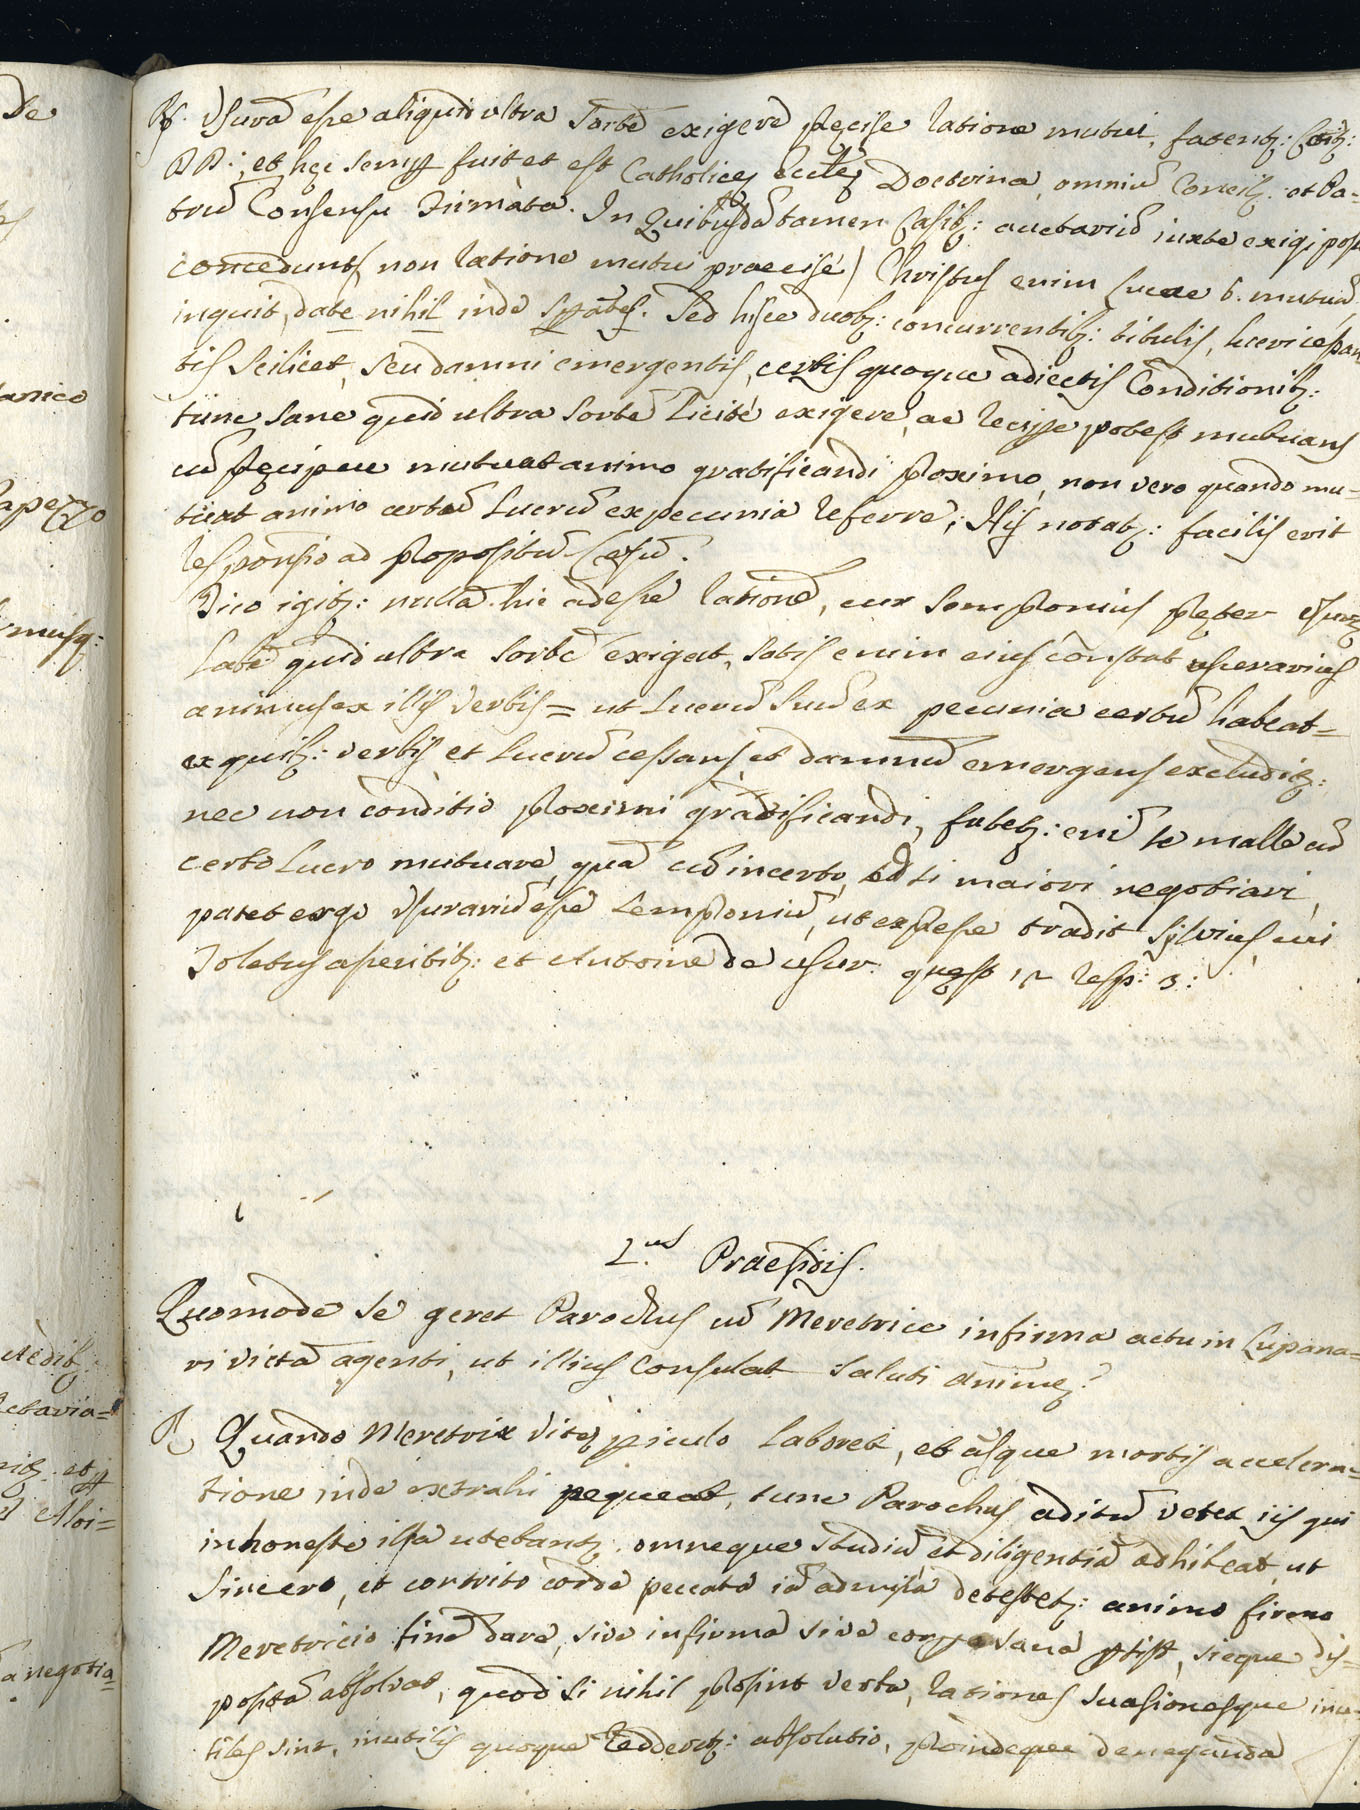 De
R. Usurā esse aliquid ultra Sortē exigere p̄cise ratione mutui, fatentʒ: Ctiʒ:
DD: et hęc semp fuit et est Catholicę Eccleę Doctrina, omniū Concil. et Pa=
trū Consensu Firmàta. In Quibusdā tamen Casibʒ: auctariū iuxte exigi posse
concedunt, non ratione mutui praecisè / Christus enim Lucae 6. mutuū
inquit, date nihil inde spātes. Sed hisce duobʒ: concurrentibʒ: titulis, lucri cessan
tis scilicet, seu damni emergentis, certis quoque adiectis Conditionibʒ:
tunc sane quid ultra Sortē licitè exigere, ac recipe potest mutuans
cū p̄cipue mutuat animo gratificandi proximo, non vero quando mu=
tuat animo certū Lucrū ex pecunia referre; His notatʒ: facilis erit
responsio ad propositū Casū.
Dico igitʒ: nullā hic adesse rationē, cur Sempronius p̄ter usurę
labē quid ultra Sortē exigat, satis enim eius constat usurarius
animus ex illis verbis = ut Lucrū suū ex pecunia certū habeat =
ex quibʒ: verbis et Lucrū cessans, et damnū emergens excluditʒ:
nec non conditio proximi gratificandi, fatetʒ: enī se malle cū
certo Lucro mutuare, quā cū incerto, et si maiori negotiari,
patet ergo Usurariū esse Semproniū, ut exp̄sse tradit Sylvius, cui
Toletus asentitʒ: et Antoine de usur. quęst 17 resp: 3:
anico
Papeno
musq:
2.us Praesidis.
Quomodo se geret Parochus cū Meretrice infirma actu in Lupana=
ri victā agenti, ut illius Consulat saluti Animę?
R Quando Meretrix vitę piculo laboret, et absque mortis accelera=
tione inde extrahi nequeat, tunc Parochus aditū vetet iis qui
inhoneste ipsa utebantʒ, omneque studiū et diligentiā adhibeat, ut
sincero, et contrito corde peccata iā admissa detestetʒ: animo firmo
Meretricio finē dare, sive infirma sive corpe sana ptist, sicque dis=
positā absolvat, quod si nihil prosint verba, rationes suasionesque inu=
tiles sint, inutilis quoque redderetʒ: absolutio, proindeque deneganda
Aedib
ctavia=
et p
Aloi=
a negotia=